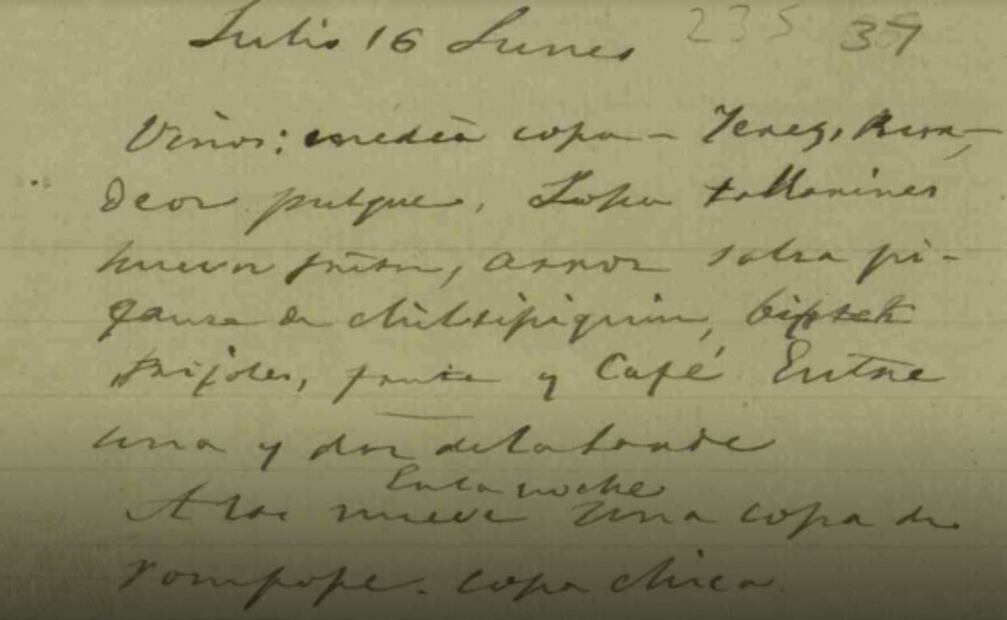 Julio 16 Lunes 235 37
Vinos: media copa - Jerez, Rion,
deor pulque, Sopa tallarines
huevos fritos, arroz salsa pi-
quansa de chilttipiquin, bifsteck
frijoles, fruta y Café Entre
una y dos de la tarde
En la noche
A las nueve una copa de
rompope. copa chica